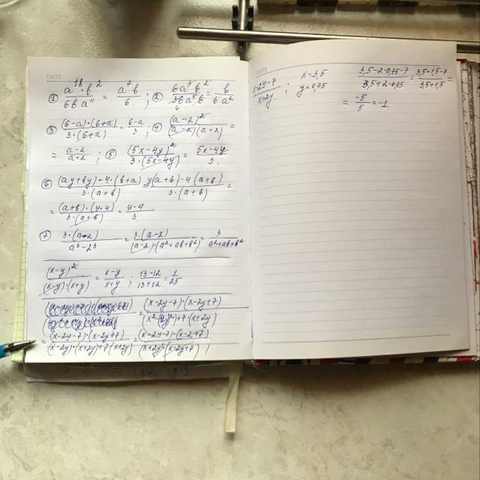 ① a¹⁸·b² / 6ba¹¹ = a⁷b / 6 ; ② 6a²b² / 36a⁴b = b / 6a²
③ (b-a)·(b+a) / 3·(b+a) = b-a / 3 ; ④ (a-2)² / (a-2)(a+2) =
= a-2 / a+2 ; ⑤ (5x-4y)² / 3·(5x-4y) = 5x-4y / 3
⑥ (ay+by)-4·(b+a) / 3·(a+b) = y(a+b)-4(a+b) / 3·(a+b) =
= (a+b)·(y-4) / 3·(a+b) = y-4 / 3
⑦ 3·(a-2) / a³-2³ = 3·(a-2) / (a-2)·(a²+ab+b²) = 3 / a²+ab+b²
(x-y)² / (x-y)·(x+y) = x-y / x+y ; 13-12 / 13+12 = 1 / 25
(x-2y-7)·(x-2y+7)
(x-2y-7)·(x-2y+7) / (x-2y)·(x+2y)+7·(x+2y) = (x-2y-7)·(x-2y+7) / (x+2y)·(x-2y+7)
x-2y-7 / x+2y ; x=3,5 y=0,75 3,5-2·0,75-7 / 3,5+2·0,75 = 3,5-1,5-7 / 3,5+1,5 =
= -5 / 5 = -1